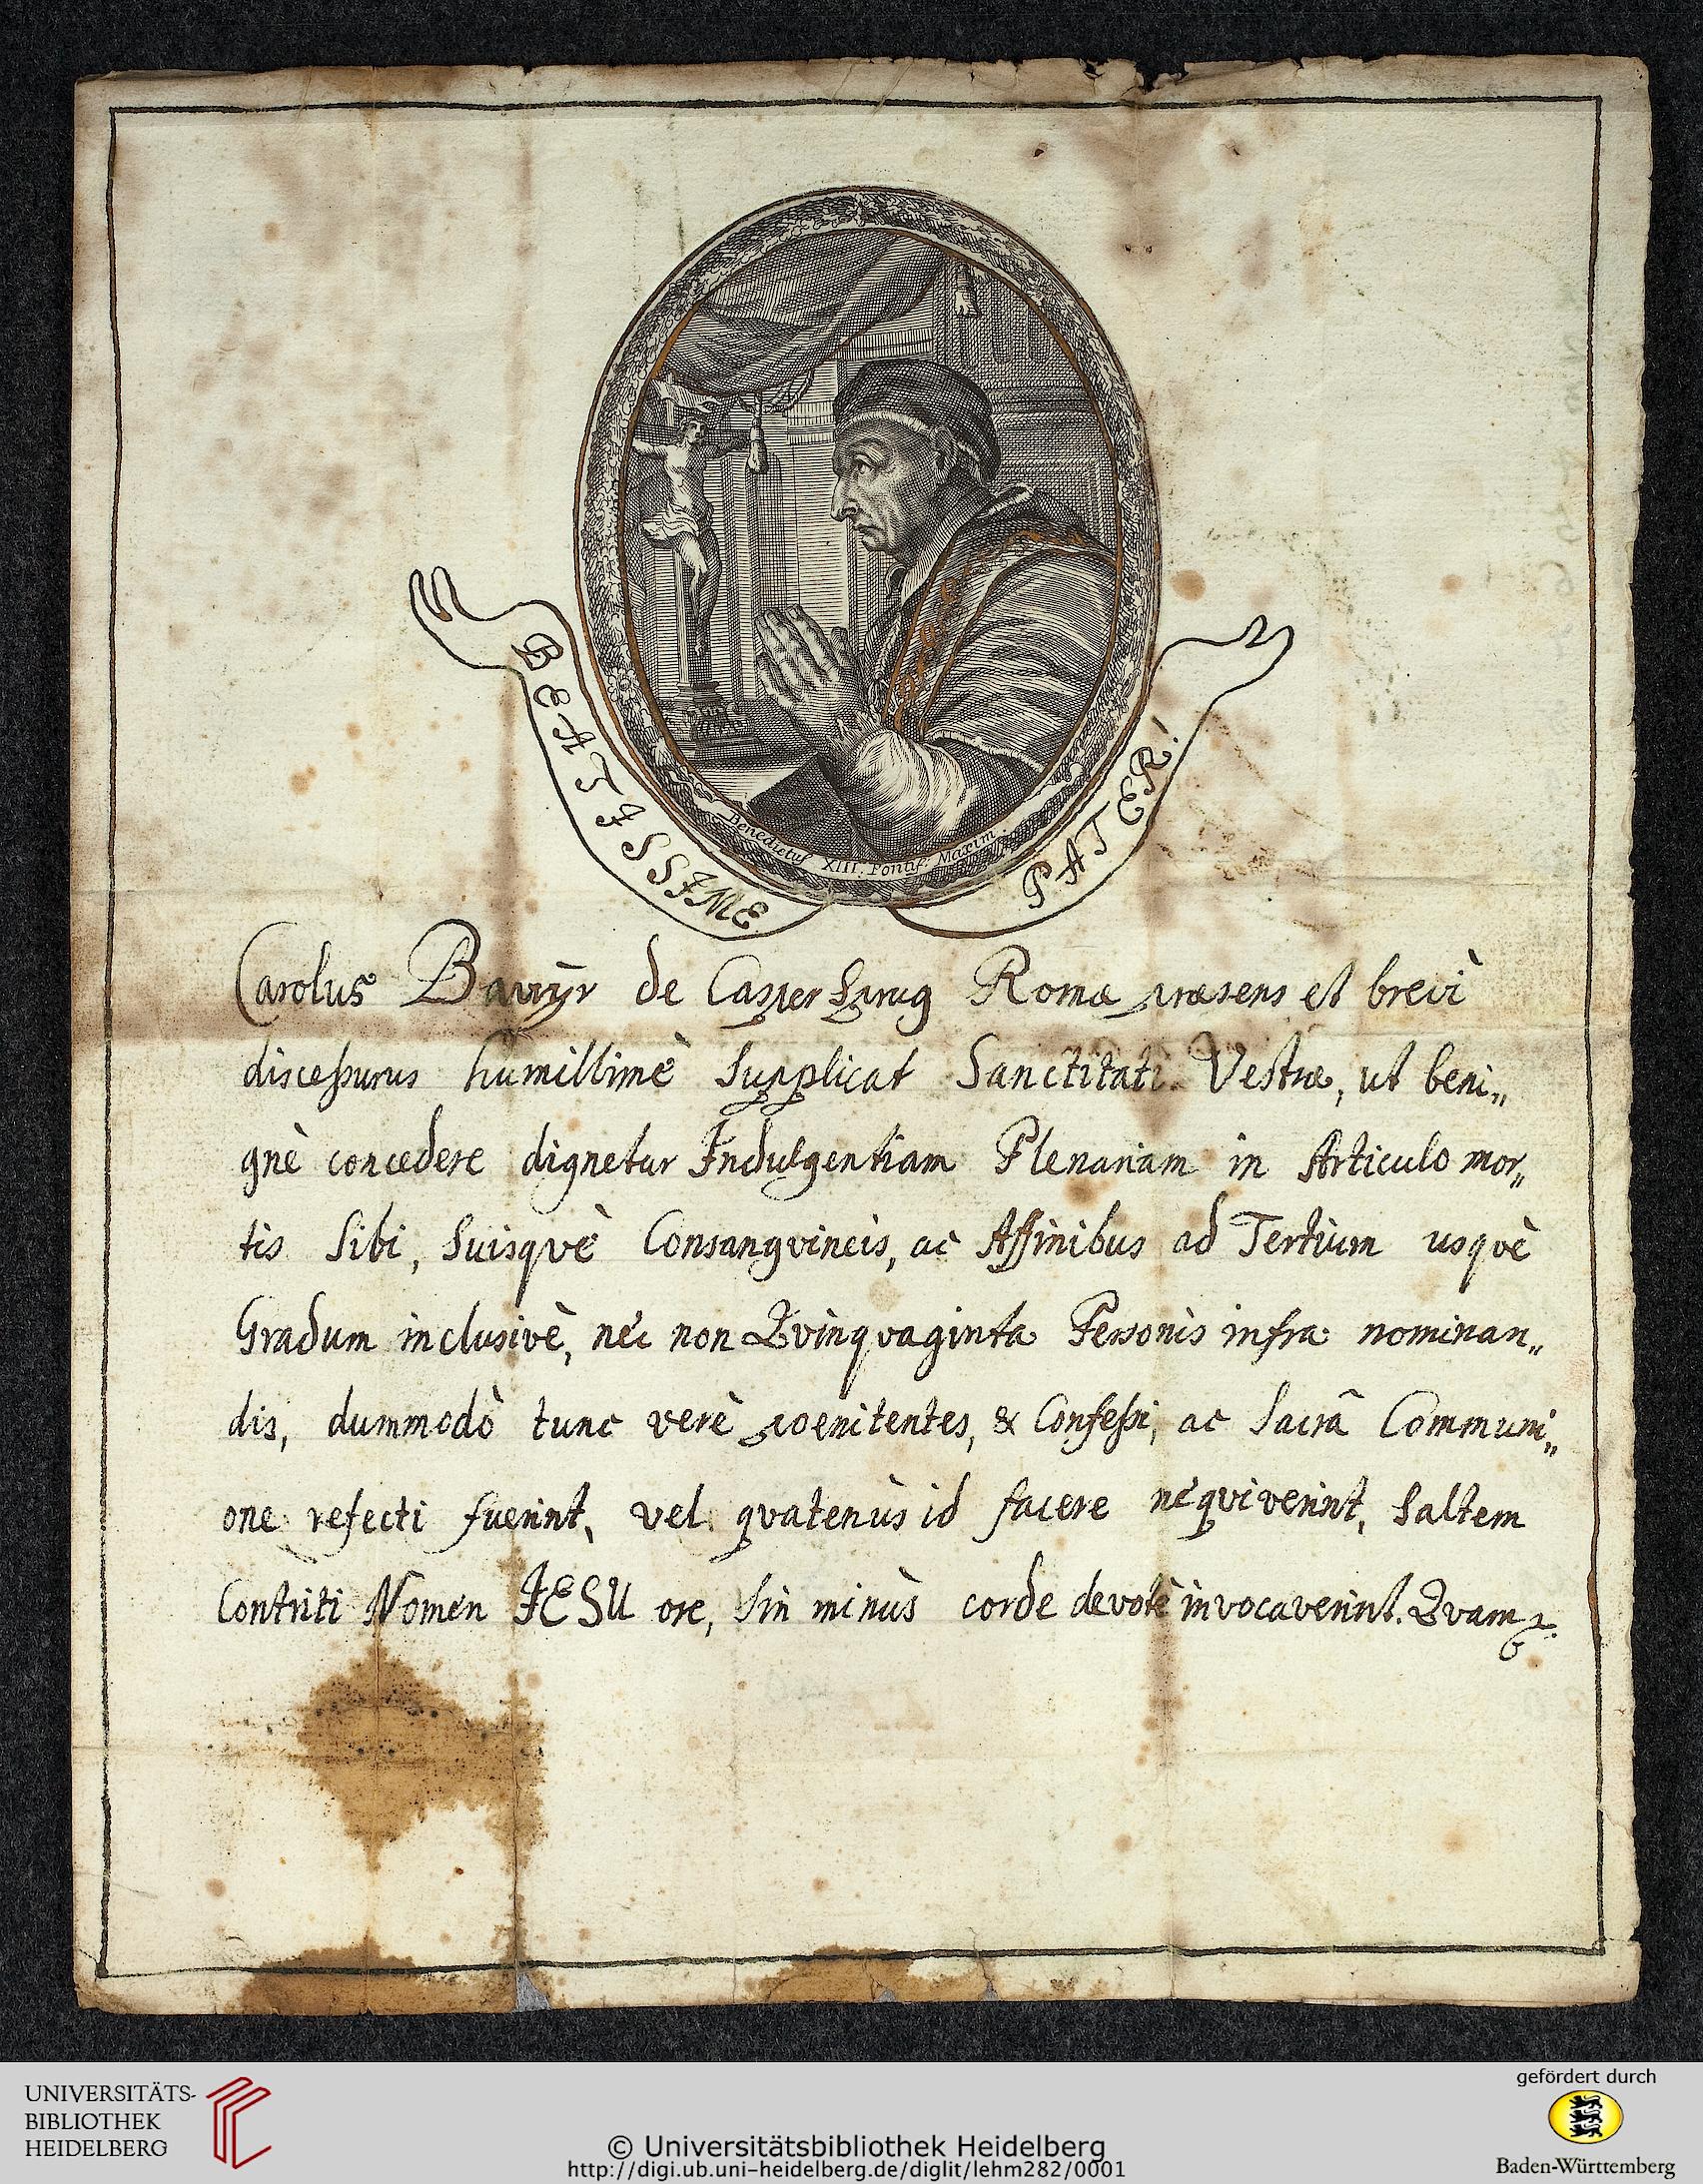 BEATISSIME PATER!
Benedictus XIII. Pontif: Maxim.
Carolus de Romæ præsens et brevi
discessurus humillimè supplicat Sanctitati Vestræ, ut beni„
gnè concedere dignetur Indulgentiam Plenariam in Articulo mor„
tis sibi, suisqvè Consangvineis, ac Affinibus ad Tertium usqvè
Gradum inclusivè, nec non Qvinqvaginta Personis infra nominan„
dis, dummodò tunc verè poenitentes, & Confessi, ac Sacrâ Communi„
one refecti fuerint, vel qvatenùs id facere neqviverint, saltem
Contriti Nomen JESU ore, sin minùs corde devotè invocaverint. Qvam
UNIVERSITÄTS-
BIBLIOTHEK
HEIDELBERG
© Universitätsbibliothek Heidelberg
http://digi.ub.uni-heidelberg.de/diglit/lehm282/0001
gefördert durch
Baden-Württemberg